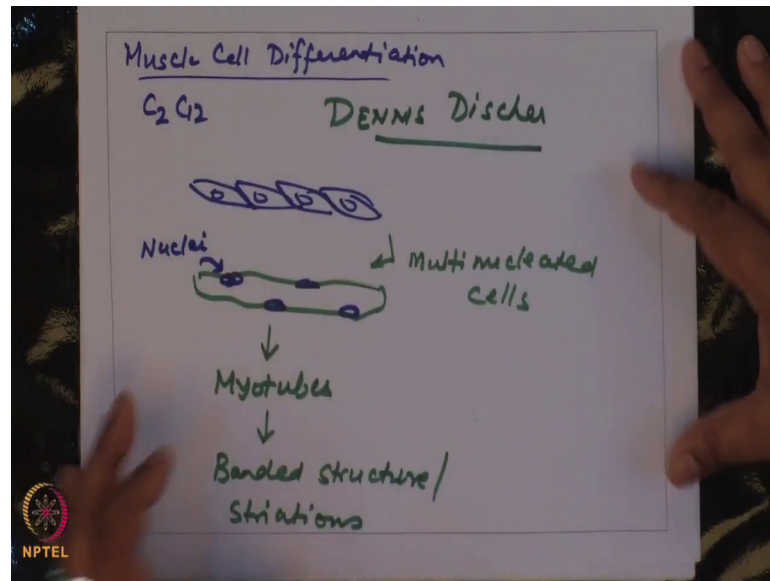 Muscle Cell Differentiation
C2 C12
DENNIS Discher
Nuclei
Multinucleated
cells
Myotubes
Banded structure/
striations
NPTEL